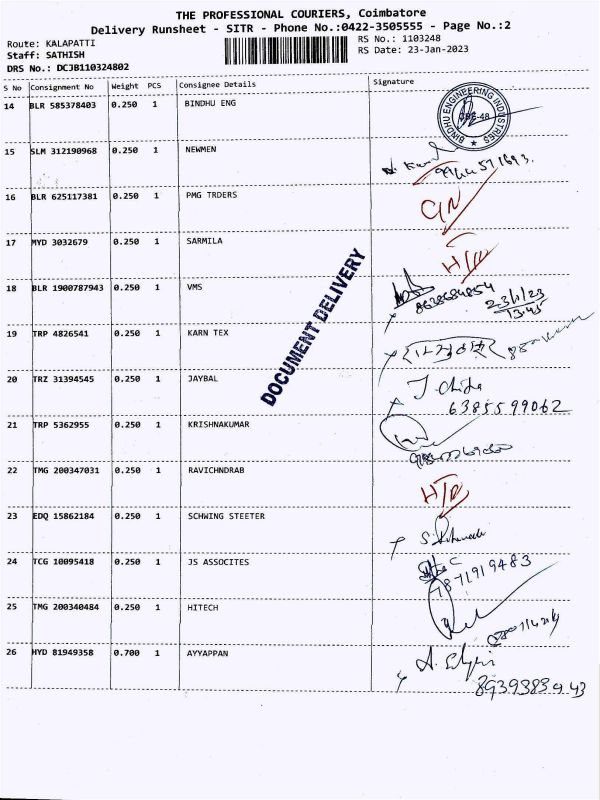 THE PROFESSIONAL COURIERS, Coimbatore
Delivery Runsheet - SITR - Phone No.:0422-3505555 - Page No.:2
Route: KALAPATTI
RS No.: 1103248
Staff: SATHISH
RS Date: 23-Jan-2023
DRS No.: DCJB110324802
S No Consignment No Weight PCS Consignee Details Signature
14 BLR 585378403 0.250 1 BINDHU ENG
BINDHU ENGINEERING INDUSTRIES
15 SLM 312190968 0.250 1 NEWMEN
16 BLR 625117381 0.250 1 PMG TRDERS
17 MYD 3032679 0.250 1 SARMILA
18 BLR 1900787943 0.250 1 VMS
23/1/23
13:45
DOCUMENT DELIVERY
19 TRP 4826541 0.250 1 KARN TEX
20 TRZ 31394545 0.250 1 JAYBAL
6385599062
21 TRP 5362955 0.250 1 KRISHNAKUMAR
22 TMG 200347031 0.250 1 RAVICHNDRAB
23 EDQ 15862184 0.250 1 SCHWING STEETER
24 TCG 10095418 0.250 1 JS ASSOCITES
7871919483
25 TMG 200340484 0.250 1 HITECH
26 HYD 81949358 0.700 1 AYYAPPAN